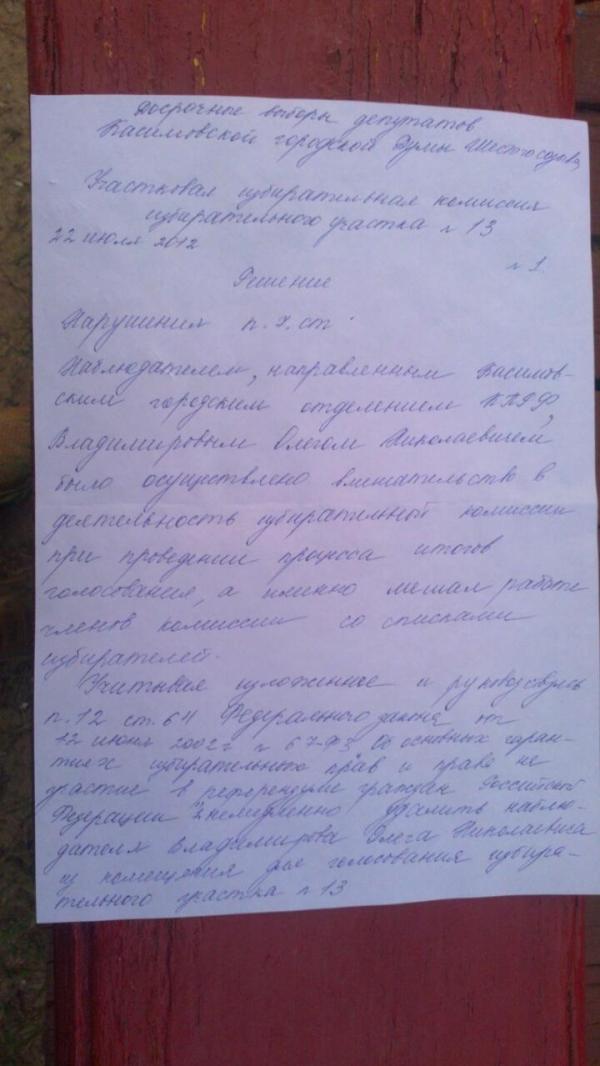 досрочные выборы депутатов
Касимовской городской Думы Шестого созыва
Участковая избирательная комиссия
избирательного участка № 13
22 июля 2012
№ 1
Решение
п. ст.
Наблюдателем, направленным Касимов-
ским городским отделением КПРФ,
Владимировым Олегом Николаевичем,
было осуществлено вмешательство в
деятельность избирательной комиссии
при проведении процесса итогов
голосования, а именно мешал работе
членов комиссии со списками
избирателей.
Учитывая изложенное и руководствуясь
п.12 ст.64 Федерального закона от
12 июня 2002г № 67-ФЗ Об основных гаран-
тиях избирательного прав и право на
участие в референдуме граждан Российской
Федерации немедленно удалить наблю-
дателя Владимирова Олега Николаевича
из помещения для голосования избира-
тельного участка № 13